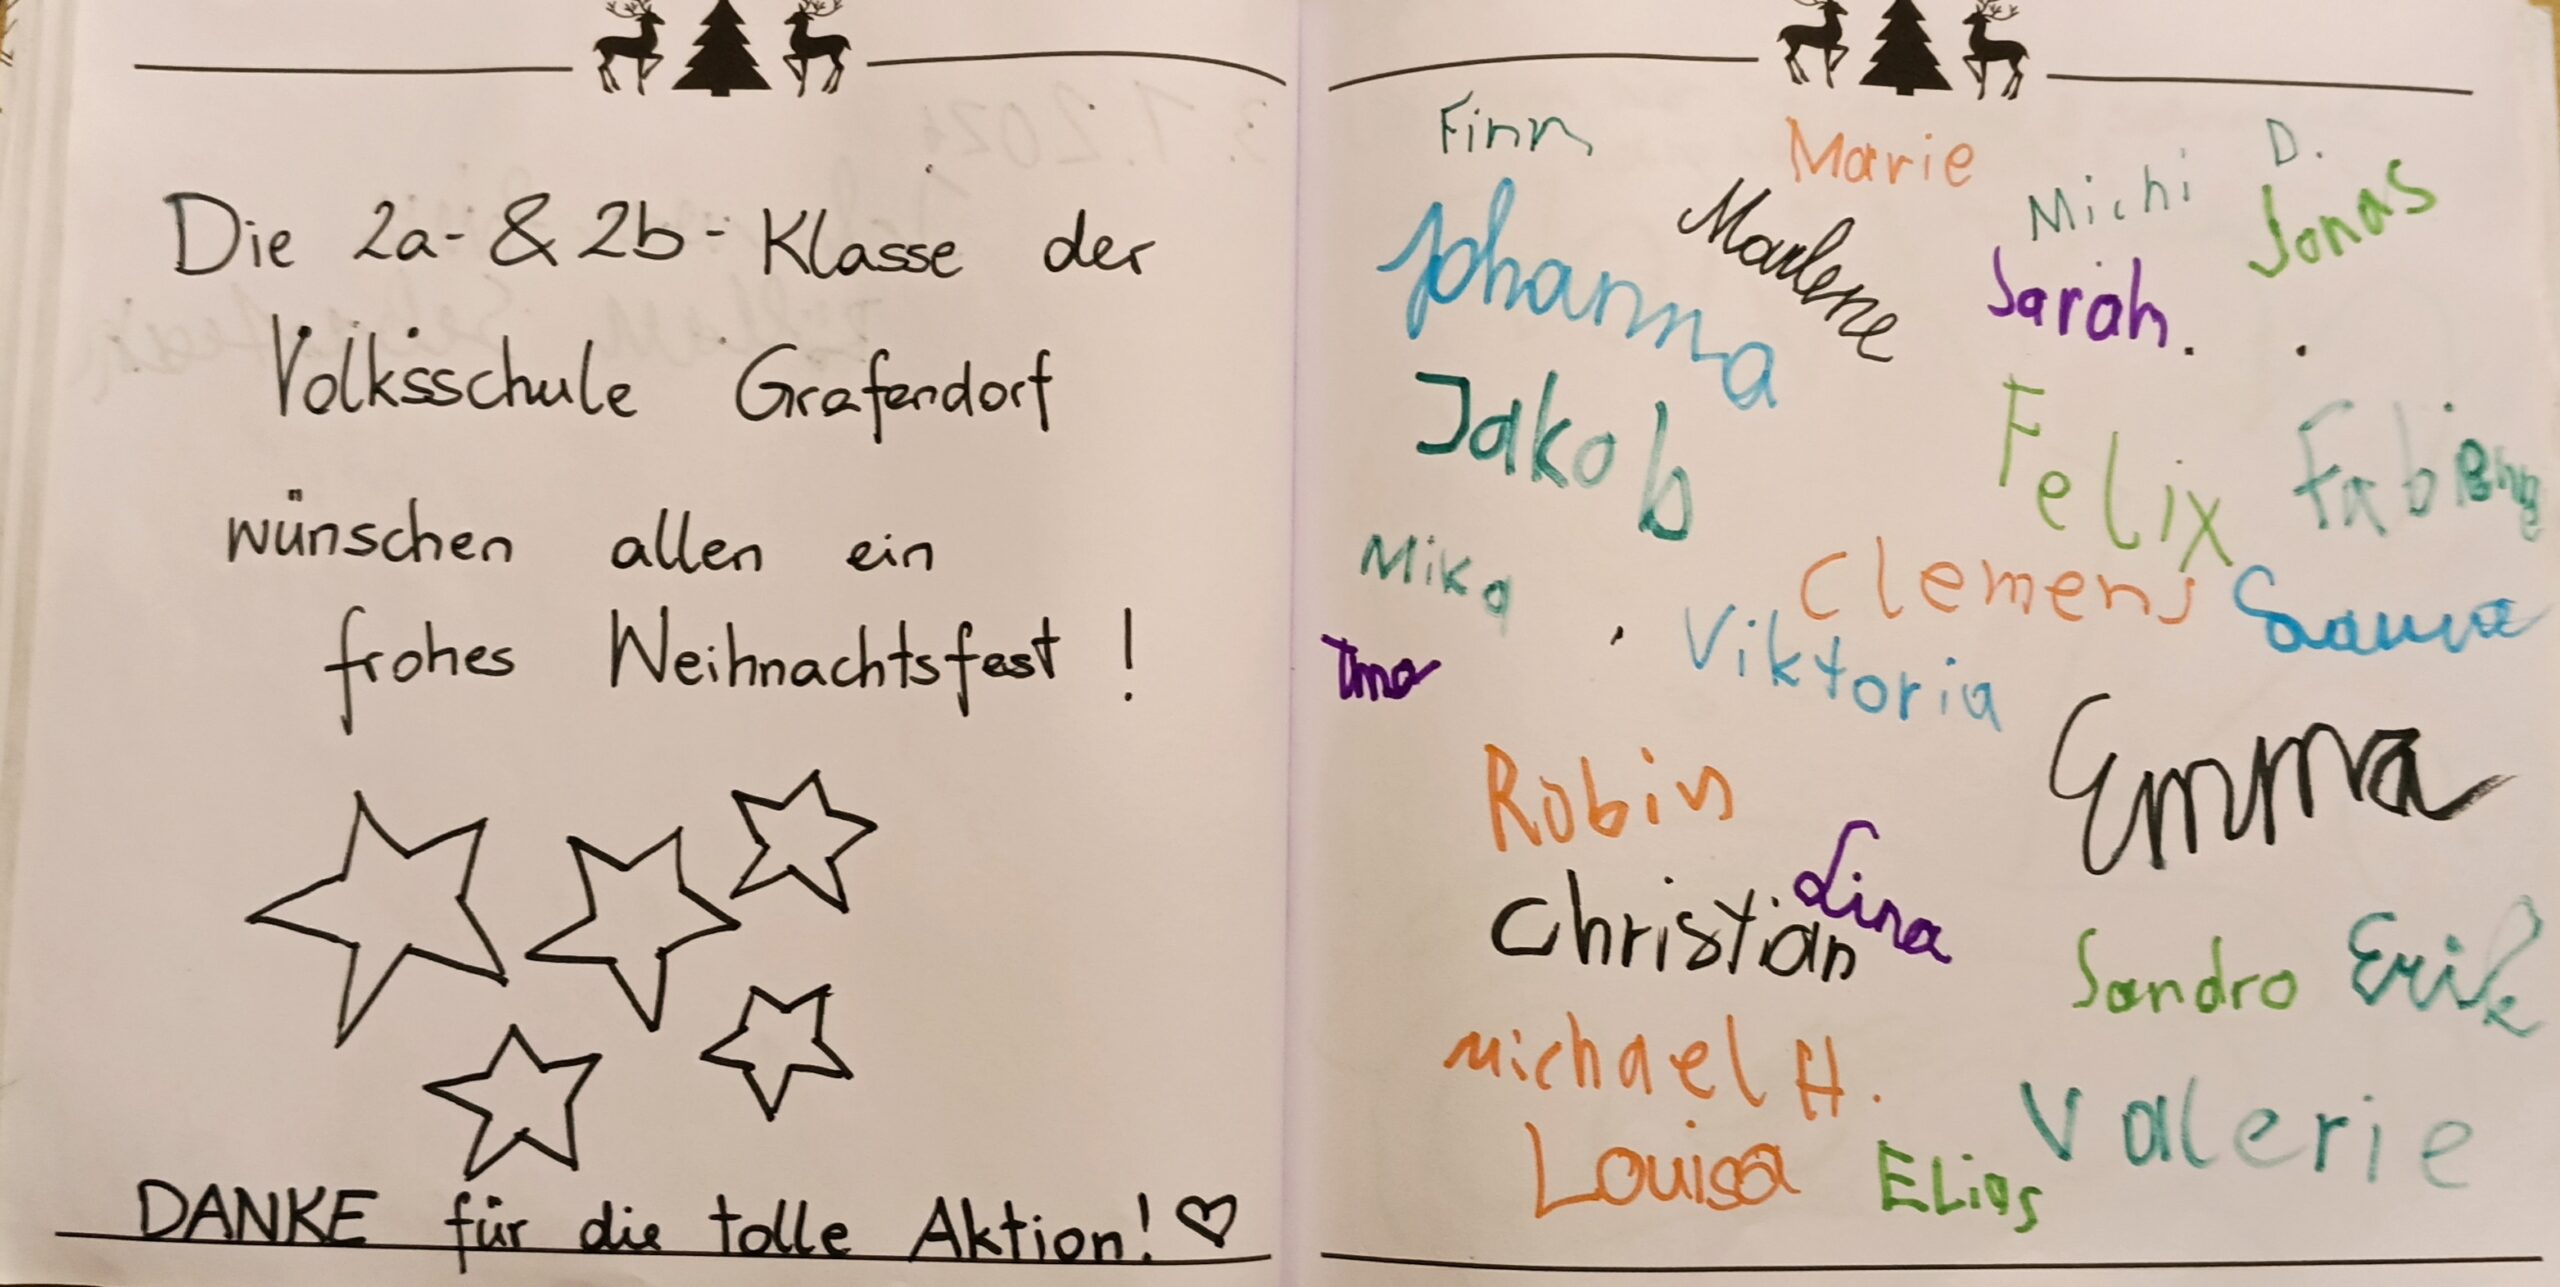 Die 2a- & 2b- Klasse der
Volksschule Grafendorf
wünschen allen ein
frohes Weihnachtsfest !
DANKE für die tolle Aktion! ♡
Finn
Marie
Michi D.
Johanna
Marlene
Sarah.
Jonas
Jakob
Felix
Mika
Clemens
Viktoria
Robin
Emma
Lina
Christian
Sandro
Erik
Michael H.
Valerie
Louisa
ELias